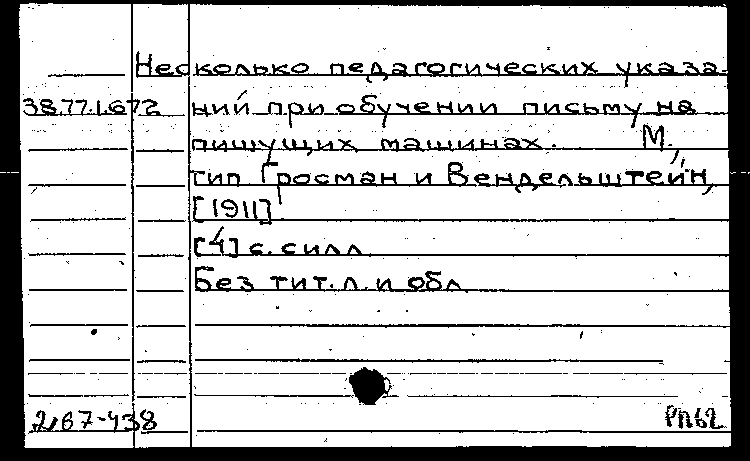 Несколько педагогических указа-
38.77.1.672 ний при обучении письму на
пишущих машинах. М.,
тип Гросман и Вендельштейн,
[1911].
[4] с. силл
Без тит. л. и обл
2167-438 РП62